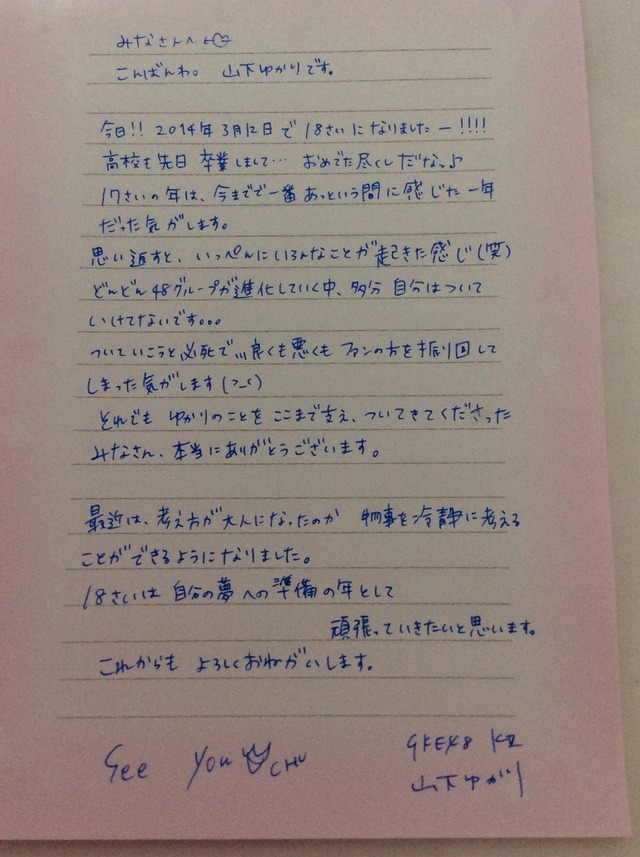 みなさんへ
こんばんわ。 山下ゆかりです。
今日!! 2014年3月12日で 18さいになりましたー!!!!
高校も先日 卒業しまして… おめでた尽くしだなっ♪
17さいの年は、今までで一番 あっという間に感じた一年
だった気がします。
思い返すと、いっぺんにいろんなことが起きた感じ(笑)
どんどん48グループが進化していく中、多分 自分はついて
いけてないです。。。
ついていこうと必死で、、、良くも悪くも ファンの方を振り回して
しまった気がします(>_<)
それでも ゆかりのことを ここまで支え、ついてきてくださった
みなさん、本当にありがとうございます。
最近は、考え方が大人になったのか 物事を冷静に考える
ことができるようになりました。
18さいは 自分の夢への準備の年として
頑張っていきたいと思います。
これからも よろしくおねがいします。
See you CHU
SKE48 KⅡ
山下ゆかり